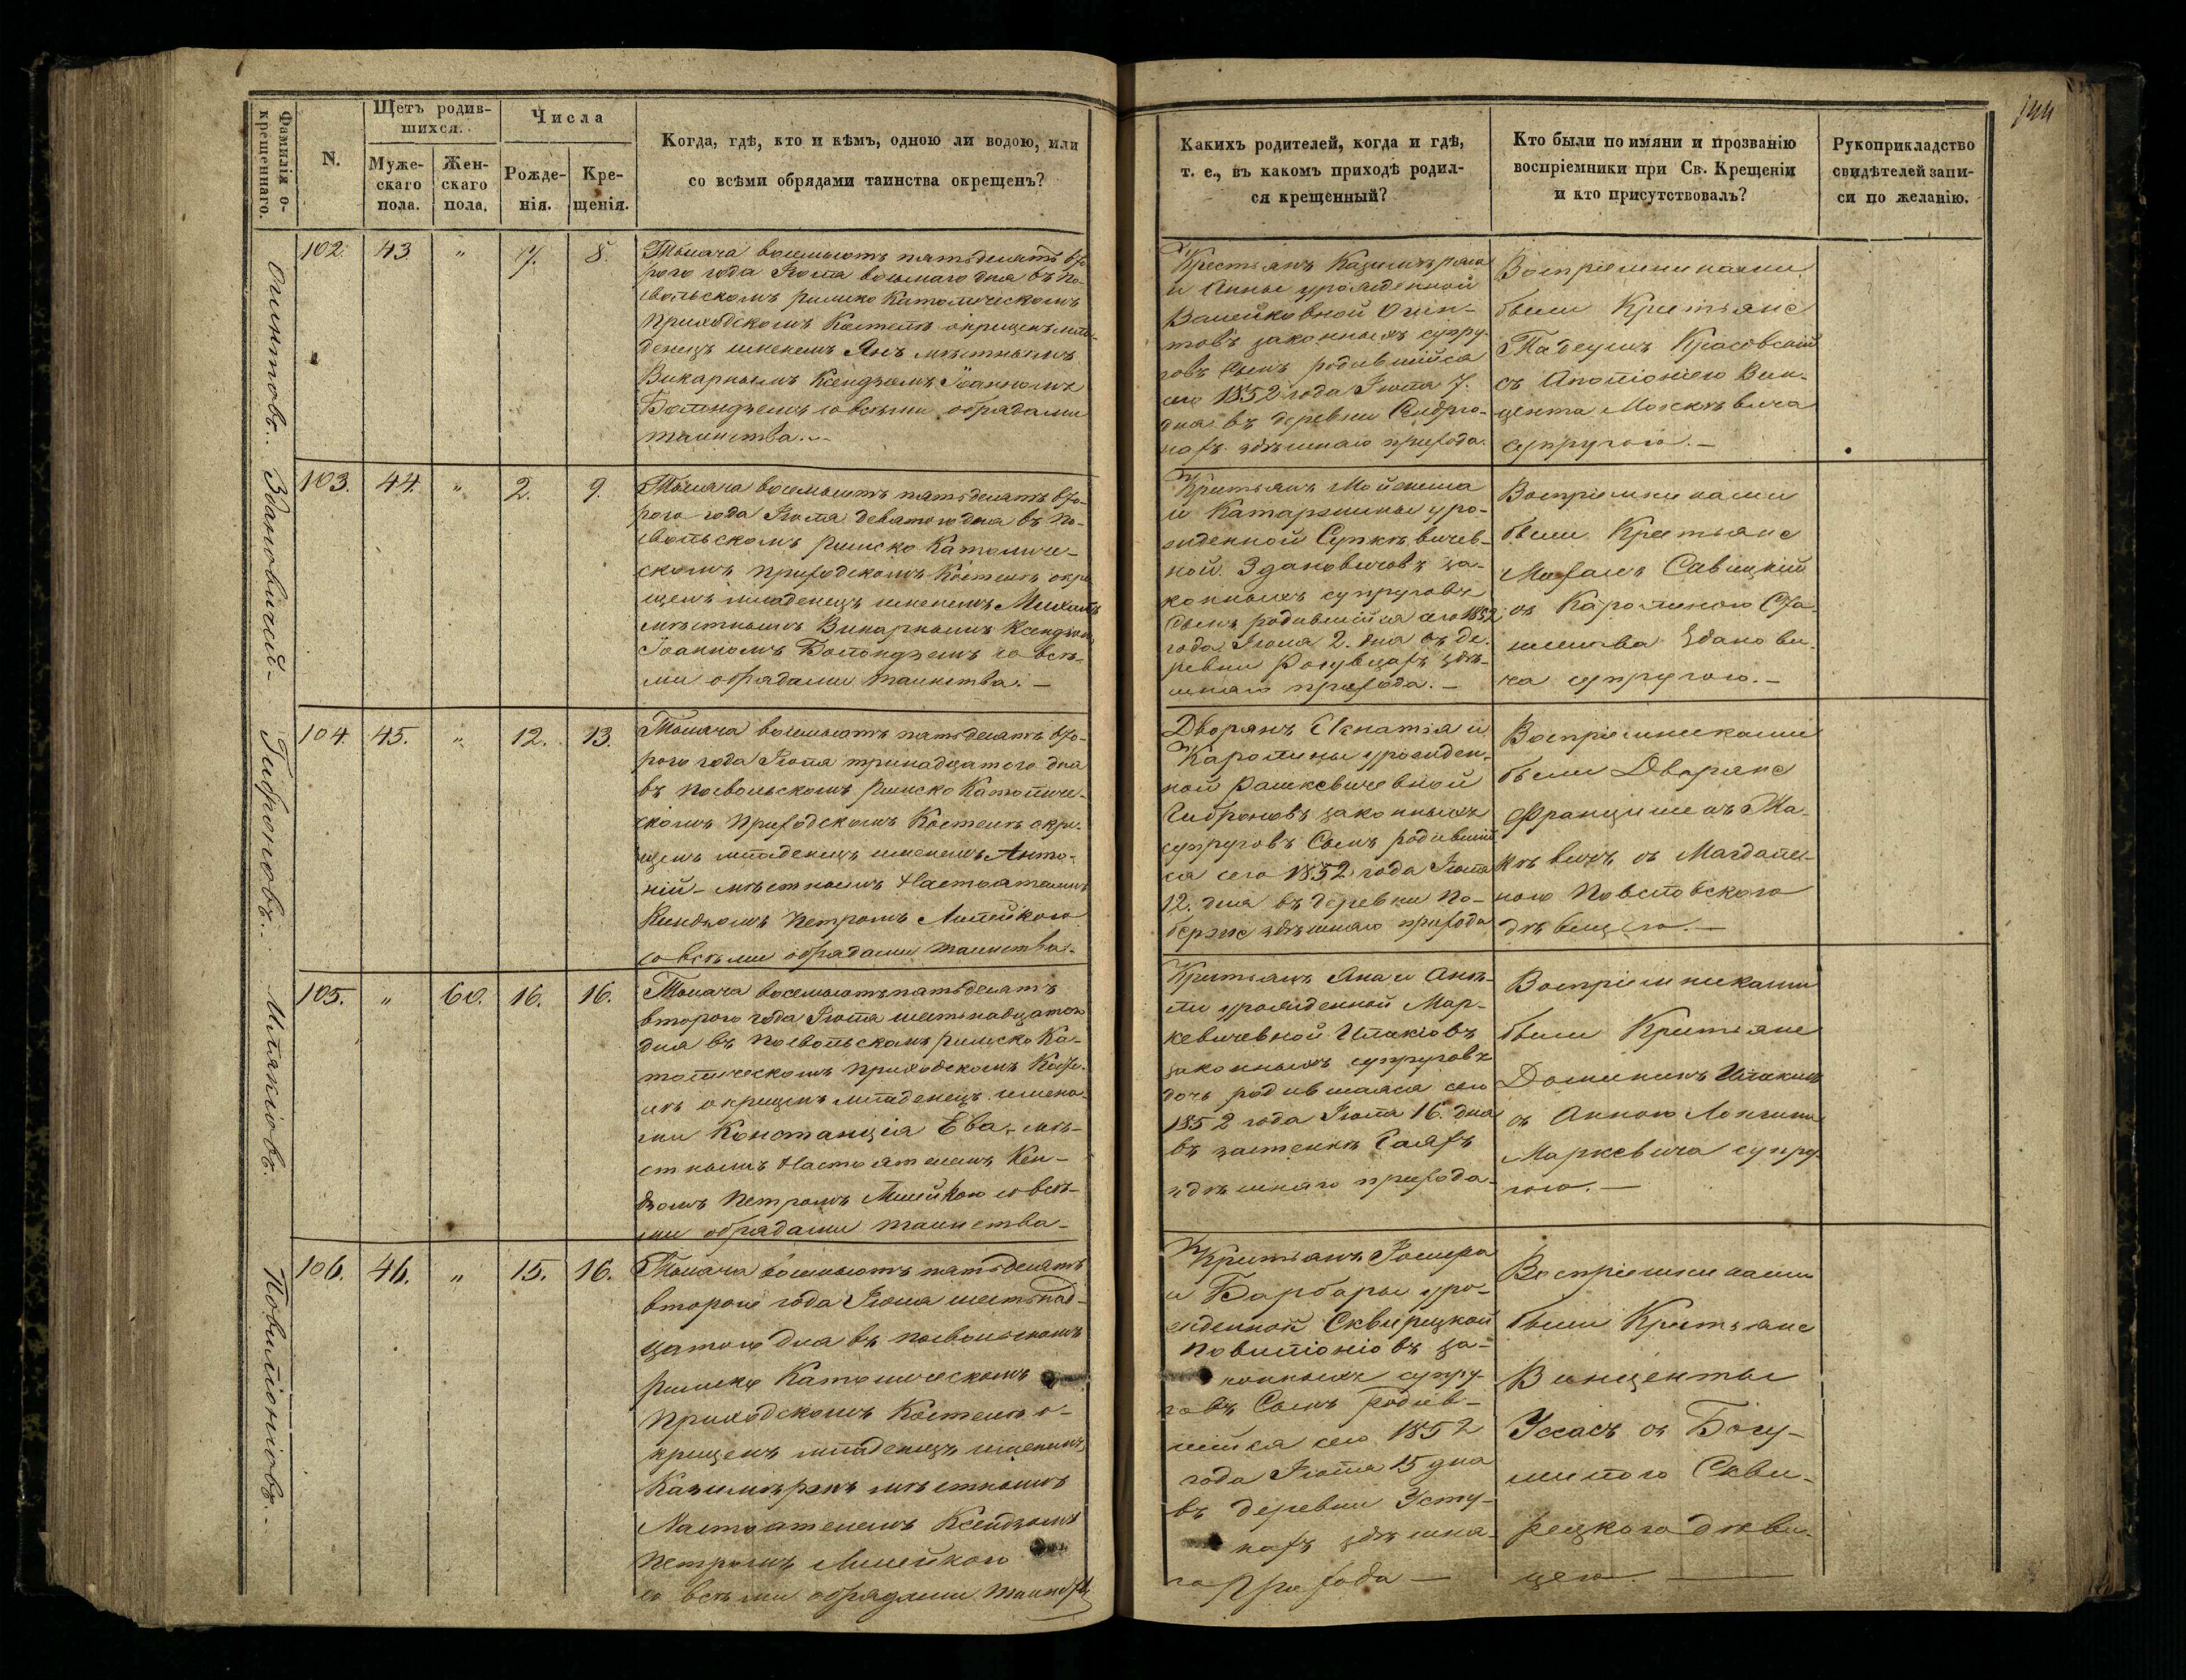 144
Фамилія о-
крещеннаго.
N.
Щетъ родив-
шихся.
Муже-
скаго
пола.
Жен-
скаго
пола.
Числа
Рожде-
нія.
Кре-
щенія.
Когда, гдѣ, кто и кѣмъ, одною ли водою, или
со всѣми обрядами таинства окрещенъ?
Каких​ъ родителей, когда и гдѣ,
т. е., въ какомъ приходѣ родил-
ся крещенный?
Кто были по имяни и прозванію
воспріемники при Св. Крещеніи
и кто присутствовалъ?
Рукоприкладство
свидѣтелей запи-
си по желанію.
Огинтовъ.
102. 43 " 7. 8.
Тысяча восемьсотъ пятьдесятъ вто
рого года Іюля восьмаго дня въ По-
свольскомъ римско Католическомъ
Приходскомъ Костелѣ окрещенъ мла-
денецъ именемъ Янъ мѣстнымъ
Викарнымъ Ксендземъ Іоанномъ
со всѣми обрядами
таинства.
Крестьянъ Казимѣра
и Анны урожденной
Огин-
товъ законныхъ супру-
говъ сынъ родившійся
сего 1852 года Іюля 7.
дня въ деревни
здѣшнаго прихода.
Воспріемниками
были Крестьяне
Тадеушъ Красовскій
съ Аполіоніею Вин-
цента Москѣвича
супругою.
Здановичей
103. 44. " 2. 9.
Тысяча восемьсотъ пятьдесятъ вто-
рого года Іюля девятого дня въ По-
свольскомъ римско Католиче-
скомъ приходскомъ Костелѣ окре
щенъ младенецъ именемъ
мѣстнымъ Викарнымъ Ксендземъ
Іоанномъ со всѣ-
ми обрядами таинства.
Крестьянъ Мойсѣша
и Катаржины уро-
жденной Суткѣвичев-
ной Здановичовъ за-
конныхъ супруговъ
сынъ родившійся сего 1852
года Іюля 2. дня въ де-
ревни здѣ-
шнаго прихода.
Воспріемниками
были Крестьяне
Савицкій
съ Каролиною Ста
нислава Здано ви
ча супругою.
Гибронтовъ.
104. 45. " 12. 13.
Тысяча восемьсотъ пятьдесятъ вто-
рого года Іюля тринадцатого дня
въ Посвольскомъ Римско Католиче-
скомъ Приходскомъ Костелѣ окре-
щенъ младенецъ именемъ Анто-
ній мѣстнымъ Настоятелемъ
Ксендзомъ Петромъ
со всѣми обрядами таинства.
Дворянъ Игнатія и
Каролины урожден-
ной Рашкевичевной
законныхъ
супруговъ Сынъ родившій
ся сего 1852 года Іюля
12. дня въ деревни По-
здѣшнаго прихода
Воспріемниками
были Дворяне
Францишекъ Жа-
съ Магдале-
ною
дѣвицею.
105. " 60. 16. 16.
Тысяча восемьсотъ пятьдесятъ
второго года Іюля шестнадцатого
дня въ Посвольскомъ римско Ка-
толическомъ Приходскомъ Косте-
лѣ окрещенъ младенецъ имена-
ми Констанція Ева мѣ-
стнымъ Настоятелемъ Ксен-
дзомъ Петромъ со всѣ-
ми обрядами таинства
Крестьянъ Яна и Анѣ-
ли урожденной Мар-
кевичевной
законныхъ супруговъ
дочь родившаяся сего
1852 года Іюля 16. дня
въ застенкѣ
здѣшнаго прихода
Воспріемниками
были Крестьяне
Доминикъ
съ Анною
Маркевича супру
гою.
Повиліонісовъ.
106. 46. " 15. 16.
Тысяча восемьсотъ пятьдесятъ
второго года Іюля шестнад-
цатого дня въ посвольскомъ
римско Католическомъ
Приходскомъ Костелѣ о-
крещенъ младенецъ именемъ
Казимѣржъ мѣстнымъ
Настоятелемъ Ксендзомъ
Петромъ
со всѣми обрядами таинства
Крестьянъ
и Барбары уро-
жденной Сквирецкой
за-
конныхъ супру-
говъ Сынъ родив-
шійся сего 1852
года Іюля 15 дня
въ деревни Усту-
кахъ здѣшна-
го Прихода
Воспріемниками
были Крестьяне
Винценты
Усасъ съ Богу-
милою Скви-
рецкого дѣви-
цею.